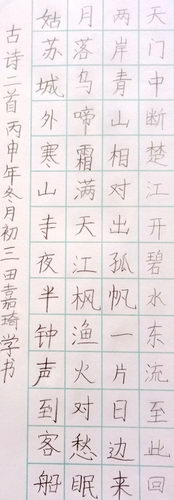 天门中断楚江开碧水东流至此回
两岸青山相对出孤帆一片日边来
月落乌啼霜满天江枫渔火对愁眠
姑苏城外寒山寺夜半钟声到客船
古诗二首丙申年冬月初三田嘉琦学书